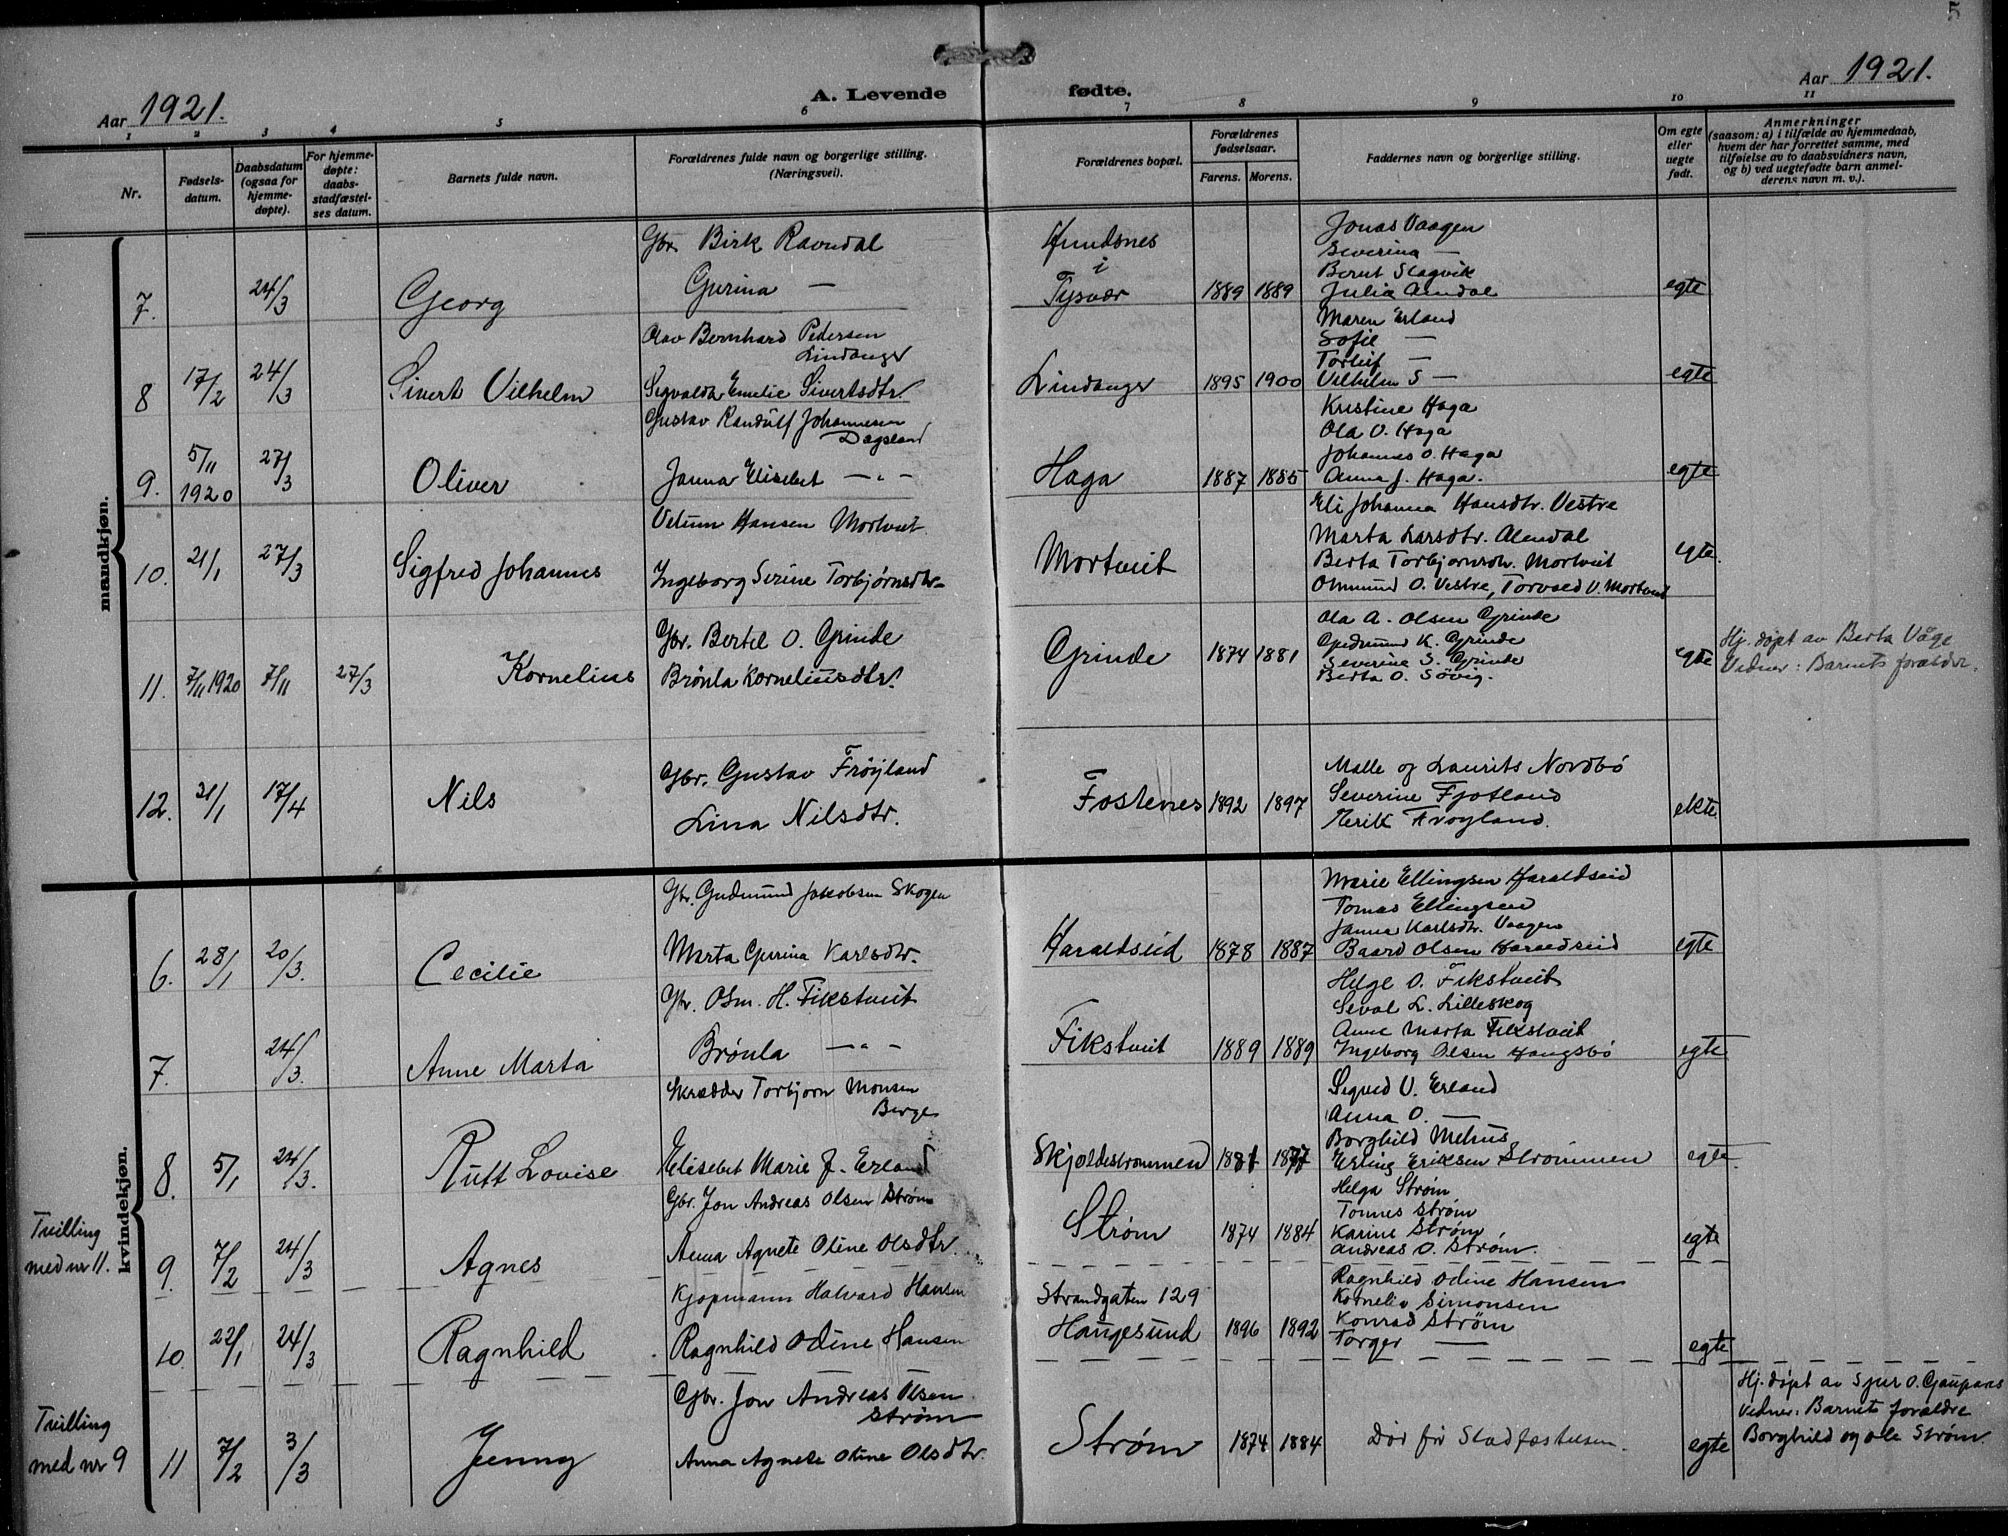 5
Aar 1921.
A. Levende fødte.
Aar 1921.
1 2 3 4 5 6 7 8 9 10 11
Nr.
Fødsels-
datum.
Daabsdatum
(ogsaa for
hjemme-
døpte).
For hjemme-
døpte:
daabs-
stadfæstel-
ses datum.
Barnets fulde navn.
Forældrenes fulde navn og borgerlige stilling.
(Næringsvei).
Forældrenes bopæl.
Forældrenes
fødselsaar.
Farens. Morens.
Faddernes navn og borgerlige stilling.
Om egte
eller
uegte
født.
Anmerkninger
(saasom: a) i tilfælde av hjemmedaab,
hvem der har forrettet samme, med
tilføielse av to daabsvidners navn,
og b) ved uegtefødte barn anmel-
derens navn m. v.).
mandkjøn.
7. 24/3 Georg
Gbr. Birk Ravndal
Gurina —
Hundsnes
i
Tysvær
1889 1889
Jonas Vaagen
Severina —
Bernt Slagvik
Julia
egte
8 17/2 24/3 Sivert Vilhelm
Olav Bernhard Pedersen
Lindanger
Segvalda Emelie Sivertsdtr.
Lindanger 1895 1900
Maren Erland
Sofie —
Torleif —
Vilhelm S —
egte
9. 5/11 1920 27/3 Oliver
Gustav Randulf Johannesen
Dagsland
Janna Elisebet — " —
Haga 1887 1885
Kristine Haga
Ola O. Haga
Johannes O. Haga
Anna J. Haga.
egte
10. 21/1 27/3 Sigfred Johannes
Hansen Mortveit
Ingeborg Serine Torbjørnsdtr.
Mortveit
Eli Johanna Hansdtr. Vestre
Marta Larsdtr. Alendal
Berta Torbjornsdr. Mortveit
Omund O. Vestre, Torvald V. Mortveit
egte.
11. 7/11 1920 7/11 27/3 Kornelius
Gbr. Bertel O. Grinde
Brønla Korneliusdtr.
Grinde 1874 1881
Ola A. Olsen Grinde
Gudmund K. Grinde
Severine S. Grinde
Berta O. Søvig.
egte
Hj. døpt av Berta Våge
Vidner: Barnets foræld​re.
12. 31/1 17/4 Nils
Gbr. Gustav Frøyland
Lina Nilsdtr.
Fostenes 1892 1897
Malle og Laurits Nordbø
Severine Fjotland
Henrik Frøyland.
ekte
kvindekjøn.
6. 28/1 20/3. Cecilie
Gbr. Gudmund Jakobsen Skogen
Marta Gurina Karlsdtr.
Haraldseid 1878 1887
Marie Ellingsen Haraldseid
Tomas Ellingsen
Janna Karlsdtr. Vaagen
Baard Olsen Haraldseid
egte
7. 24/3. Anne Marta
Gbr. Osm. H. Fikstveit
Brønla — " —
Fikstveit 1889 1889
Helge O. Fikstveit
Seval L. Lilleskog
Anne Marta Fikstveit
Ingeborg Olsen Hangsbø
egte
8. 5/1 24/3. Rutt Lovise
Skrædder Torbjorn Monsen
Berge
Elisebet Marie J. Erland
Skjoldestrommen 1881 1877
Sigurd O. Erland
Anna O. —
Borghild Mehus
Erling Eriksen Strømmen
egte.
Tvilling
med nr 11.
9. 7/2 24/3 Agnes
Gbr. Jon Andreas Olsen Strøm
Anna Agnete Oline Olsdtr.
Strøm 1874 1884
Helga Strøm
Tonnes Strøm
Karine Strøm
Andreas O. Strøm.
egte
10. 22/1 24/3 Ragnhild
Kjopmann Halvard Hansen
Ragnhild Odine Hansen
Strandgaten 129
Haugesund 1896 1892
Ragnhild Odine Hansen
Kornelia Simonsen
Konrad Strøm
Torger —
egte
Tvilling
med nr 9
11 7/2 3/3 Jenny
Gbr. Jon Andreas Olsen
Strøm
Anna Agnete Oline Olsdtr.
Strøm 1874 1884
Død før Stadfæstelsen.
egte
Hj. døpt av Sjur O. Gaupaas
Vidner: Barnets forældre
Borghild og Ole Strøm.